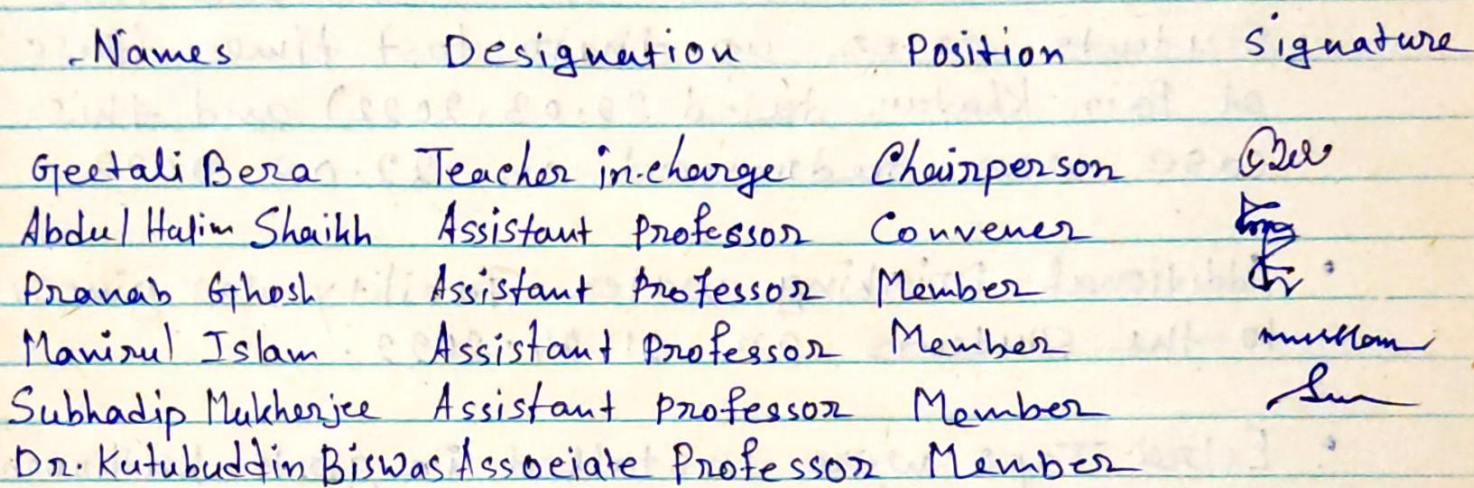 Names Designation Position Signature
Geetali Bera Teacher in-charge Chairperson
Abdul Halim Shaikh Assistant Professor Convener
Pranab Ghosh Assistant Professor Member
Manirul Islam Assistant Professor Member
Subhadip Mukherjee Assistant Professor Member
Dr. Kutubuddin Biswas Associate Professor Member